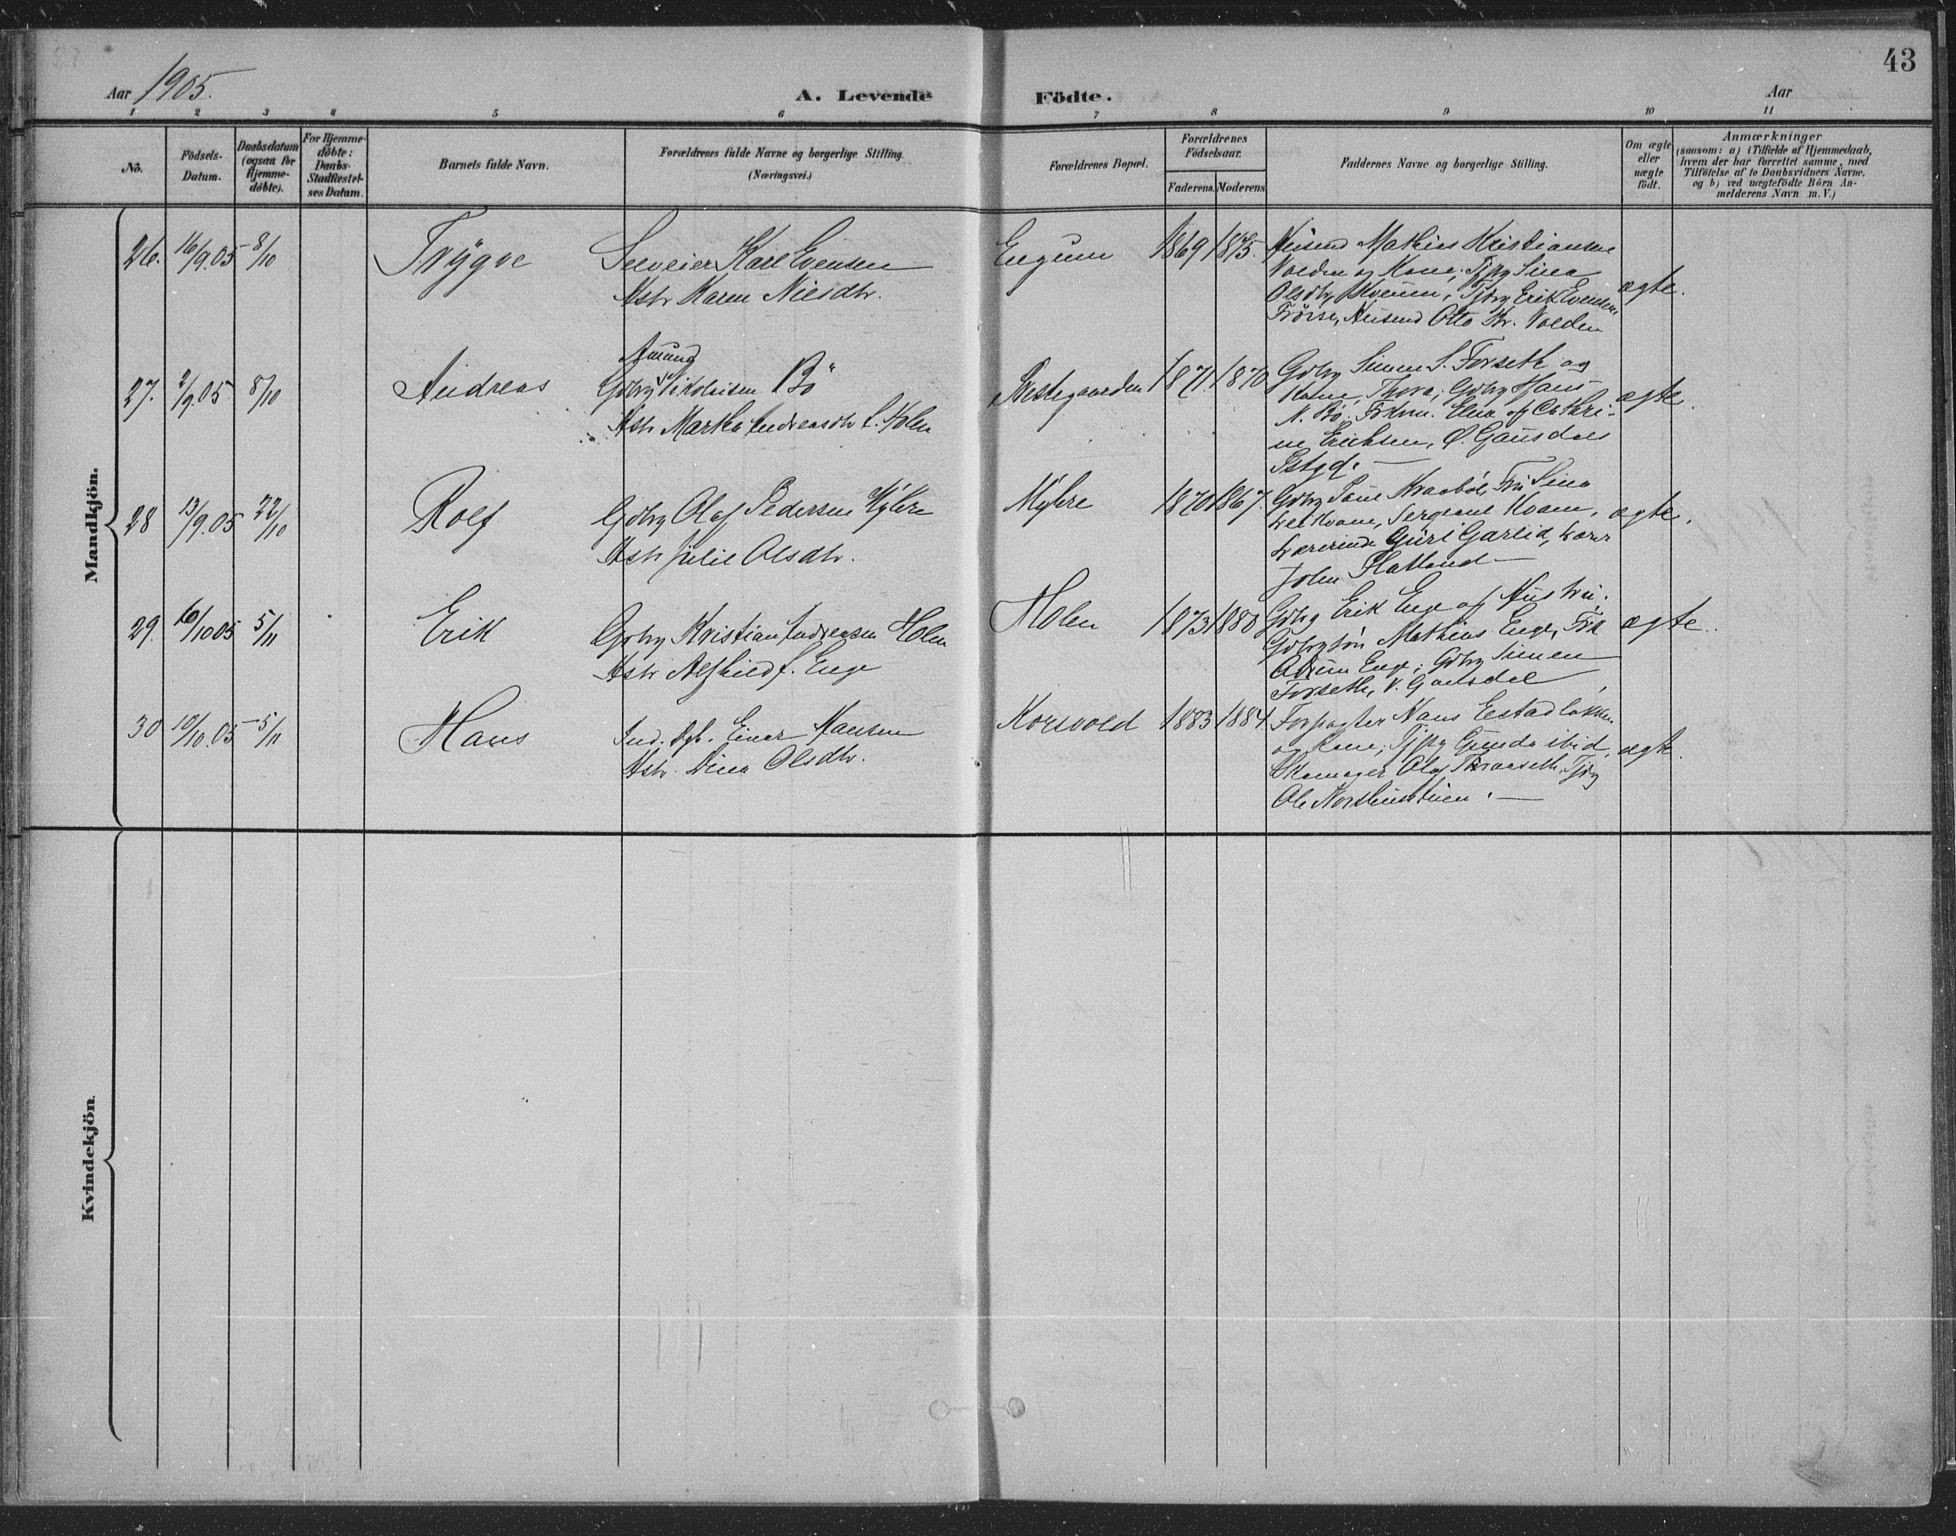 43
Aar 1905.
A. Levende Födte.
Aar
1 2 3 4 5 6 7 8 9 10 11
No.
Födsels-
Datum.
Daabsdatum
(ogsaa for
Hjemme-
döbte).
For Hjemme-
döbte:
Daabs-
Stadfæstel-
ses Datum.
Barnets fulde Navn.
Forældrenes fulde Navne og borgerlige Stilling.
(Næringsvei.)
Forældrenes Bopæl.
Forældrenes
Födselsaar.
Faderens. Moderens.
Faddernes Navne og borgerlige Stilling.
Om ægte
eller
uægte
födt.
Anmærkninger
(saasom: a) i Tilfælde af Hjemmedaab,
hvem der har forrettet samme, med
Tilföielse af to Daabsvidners Navne,
og b) ved uægtefödte Börn An-
melderens Navn m. V.)
Mandkjön.
26. 16/9.05 8/10 Trygve
Selveier Karl Evensen
Hstr Karen Nilsdtr.
Engum 1869 1875.
Husmd Mathias Kristiansen
Volden og Kone, Pige Sina
Olsdtr, Erik Evensen
Husmd Otto Kr. Volden
ægte.
27. 2/9.05 8/10 Andreas
Amund
Gdbr Nikolaisen Bö
Hstr Martha Andreasdtr f. Holen
Prestegaarden 1871. 1870
Gdbr Simen S. Forseth og
Kone, Thora, Gdbr Hans
N. Bö, Frkn. Elna og Cathri-
ne Erichsen, Ö. Gausdals
Pstgd. —
ægte.
28 13/9.05 22/10 Rolf
Gdbr Olaf Pedersen Myhre
Hstr Julie Olsdtr.
Myhre 1870 1867.
Gdbr Paul Kraaböl, Fru Sina
Kvam, Sergeant Kvam,
Lærerinde Guri Garlid, Lærer
John Flatland —
ægte.
29. 16/10 05 5/11 Erik
Gdbr Kristian Andreasen Holen
Hstr Alfhild f. Enge
Holen 1873 1880
Gdbr Erik Enge og Hustru,
Gdbrsön Mathias Enge, Frk
Enge, Gdbr Simen
Forseth, V. Gausdal
ægte.
30 10/10.05 5/11 Hans
Ind. Einar Hansen
Hstr. Dina Olsdtr.
Korsvold 1883 1884.
Forpagter Hans Eestadlökken
og Kone, Gunda ibid,
Skomager Olaf
Ole
ægte.
Kvindekjön.